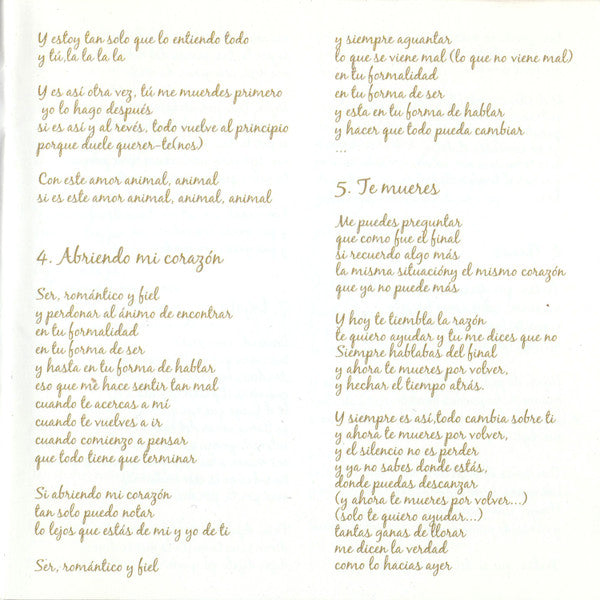 Y estoy tan solo que lo entiendo todo
y tú, la la la la
Y es así otra vez, tú me muerdes primero
yo lo hago después
si es así y al revés, todo vuelve al principio
porque duele querer-te(nos)
Con este amor animal, animal
si es este amor animal, animal, animal
4. Abriendo mi corazón
Ser, romántico y fiel
y perdonar al ánimo de encontrar
en tu formalidad
en tu forma de ser
y hasta en tu forma de hablar
eso que me hace sentir tan mal
cuando te acercas a mí
cuando te vuelves a ir
cuando comienzo a pensar
que todo tiene que terminar
Si abriendo mi corazón
tan solo puedo notar
lo lejos que estás de mi y yo de ti
Ser, romántico y fiel
y siempre aguantar
lo que se viene mal (lo que no viene mal)
en tu formalidad
en tu forma de ser
y esta en tu forma de hablar
y hacer que todo pueda cambiar
...
5. Te mueres
Me puedes preguntar
que como fue el final
si recuerdo algo más
la misma situacióny el mismo corazón
que ya no puede más
Y hoy te tiembta la razón
te quiero ayudar y tu me dices que no
Siempre hablabas del final
y ahora te mueres por volver,
y hechar el tiempo atrás.
Y siempre es así,todo cambia sobre ti
y ahora te mueres por volver,
y el silencio no es perder
y ya no sabes donde estás,
donde puedas descanzar
(y ahora te mueres por volver...)
(solo te quiero ayudar...)
tantas ganas de llorar
me dicen la verdad
como lo hacias ayer